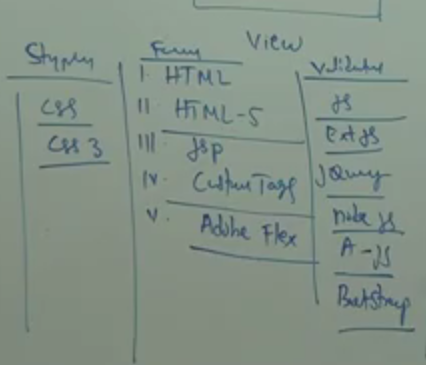 View
Styles
CSS
CSS3
Form
I. HTML
II HTML-5
III JSP
IV. Custom Tags
V. Adobe Flex
JS
Ext JS
JQuery
node JS
A-JS
BootStrap